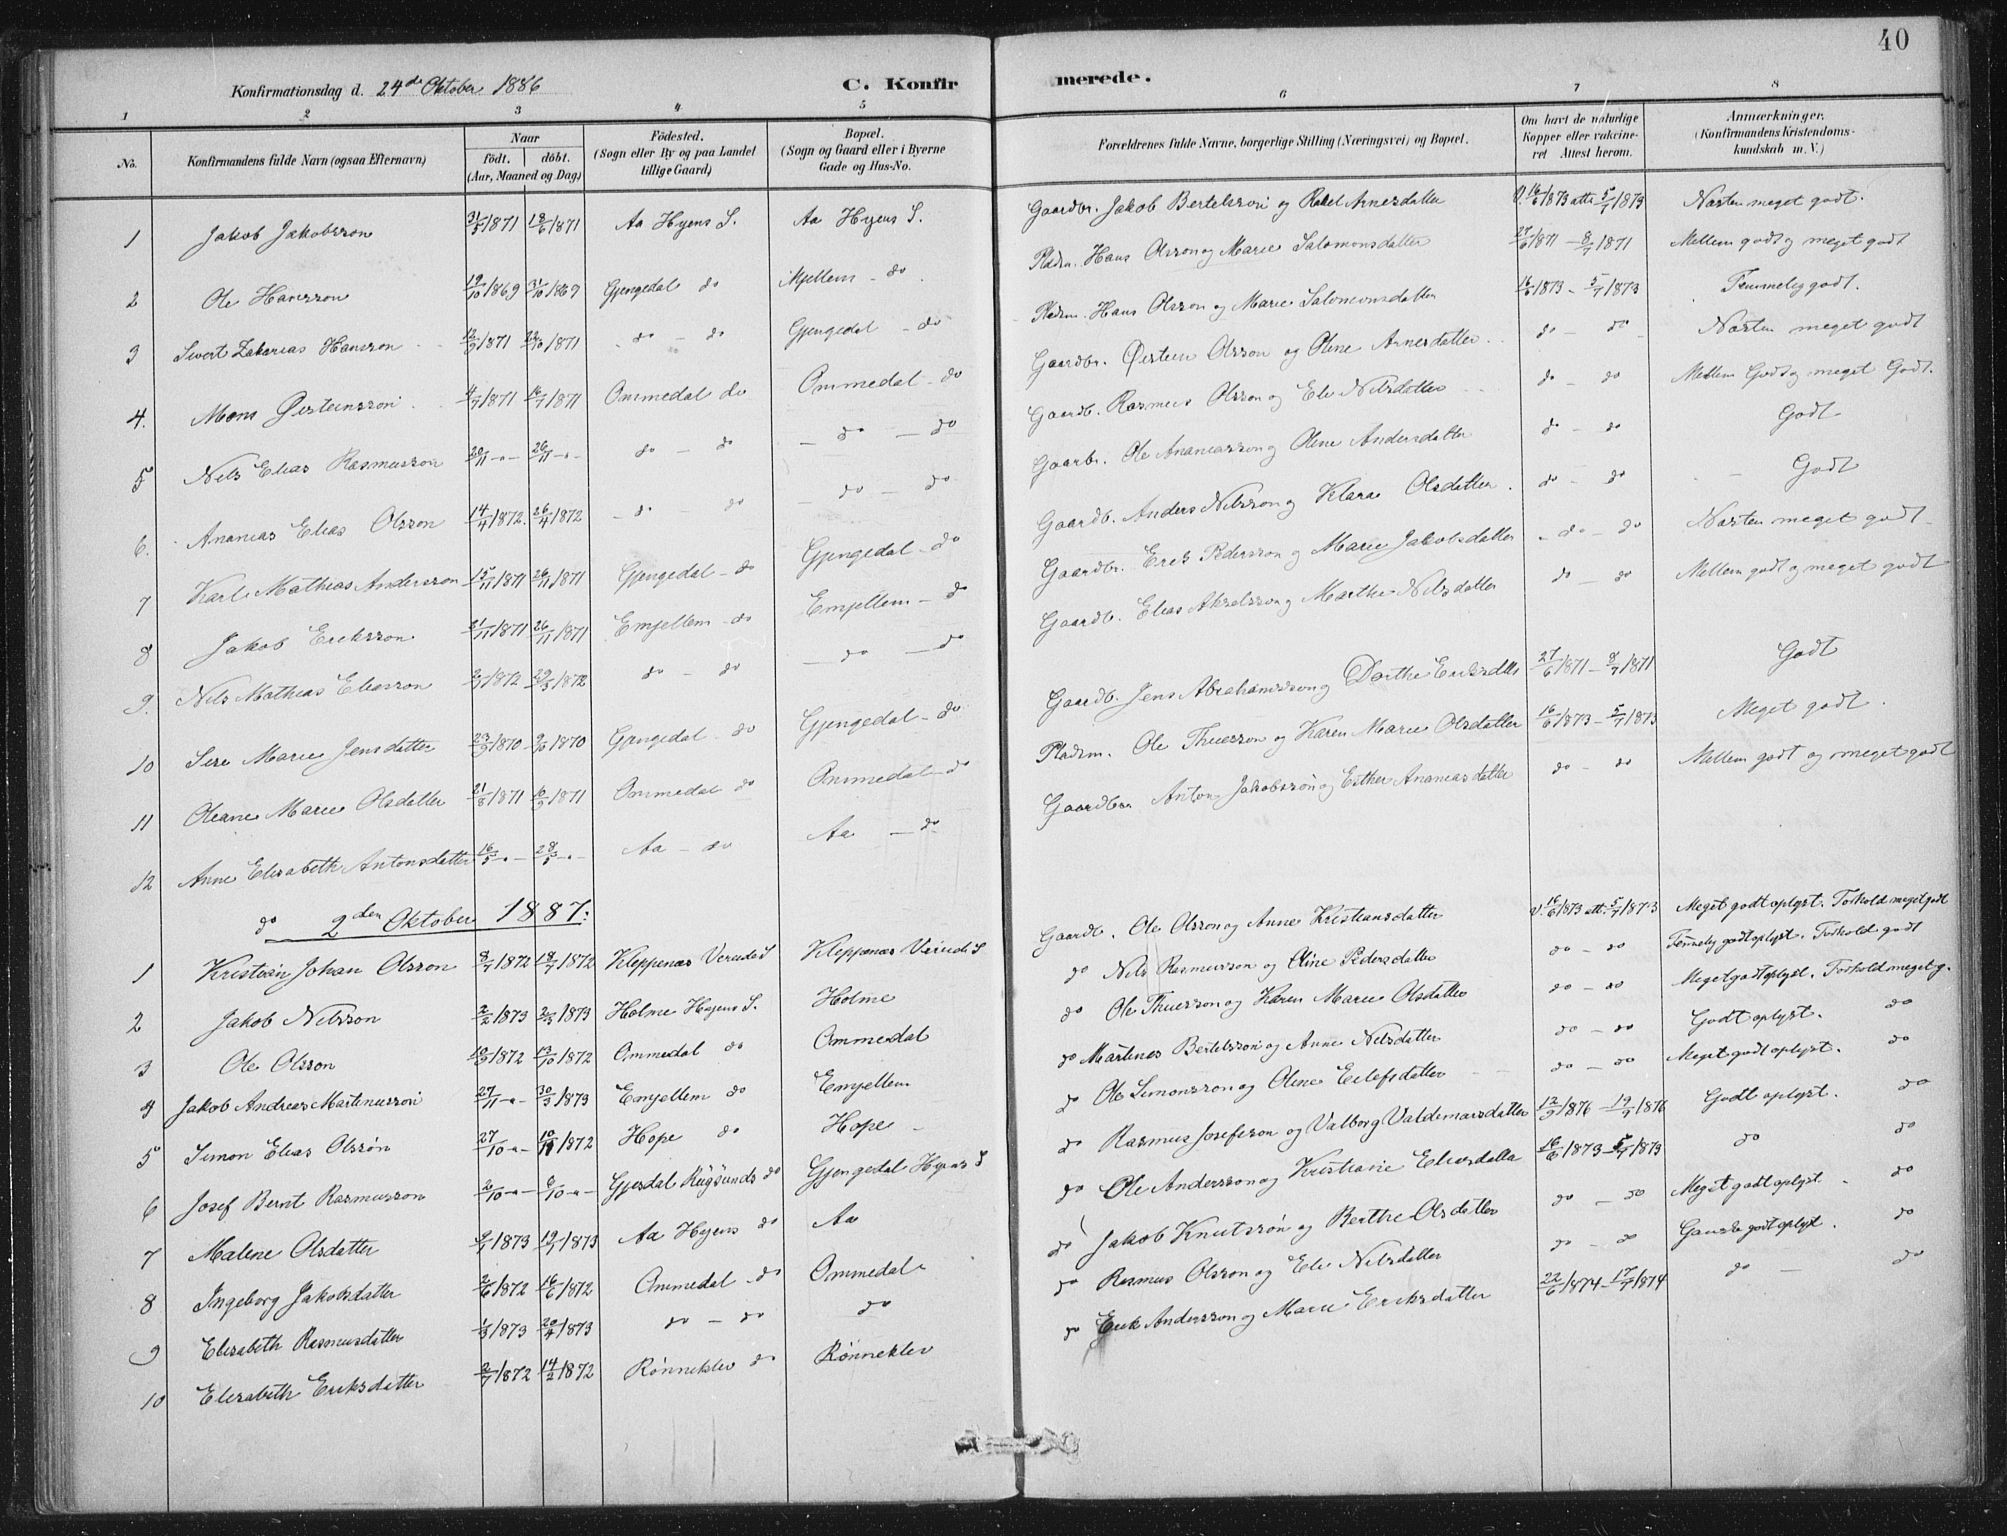 40
Konfirmationsdag d. 24de Oktober 1886 C. Konfirmerede.
1 2 3 4 5 6 7 8
No. Konfirmandens fulde Navn (ogsaa Efternavn) Naar födt. döbt. (Aar, Maaned og Dag) Födested. (Sogn eller By og paa Landet tillige Gaard) Bopæl. (Sogn og Gaard eller i Byerne Gade og Hus-No. Forældrenes fulde Navne, borgerlige Stilling (Næringsvei) og Bopæl. Om havt de naturlige Kopper eller vakcineret Attest herom. Anmærkninger. (Konfirmandens Kristendomskundskab m. V.)
1 Jakob Jakobsson 31/5 1871 18/6 1871 Aa Hyens S. Aa Hyens S. Gaardbr. Jakob Bertelsson og Rakel Arnesdatter V. 16/6 1873 att. 5/7 1873 Næsten meget godt.
2 Ole Hansson 19/10 1869 31/10 1869 Gjengedal do Mjellem - do Pladsm. Hans Olsson og Marie Salomonsdatter 27/6 1871 - 8/7 1871 Mellem godt og meget godt
3 Sivert Zakarias Hansson 12/9 1871 22/10 1871 do - do Gjengedal - do Pladsm. Hans Olsson og Marie Salomonsdatter 16/6 1873 - 5/7 1873 Temmelig godt.
4. Mons Øisteinsson 4/7 1871 16/7 1871 Ommedal do Ommedal - do Gaardbr. Øistein Olsson og Oline Arnesdatter do - do Næsten meget godt
5 Nils Elias Rasmusson 20/11 - 26/11 - do - do - do - do Gaardb. Rasmus Olsson og Eli Nilsdatter do - do Mellem Godt og meget Godt.
6. Ananias Elias Olsson 14/4 1872. 26/4 1872 - do - do - do - do Gaarbr. Ole Ananiasson og Oline Andersdatter do - do Godt
7 Karl Mathias Andersson 15/11 1871 26/11 1871 Gjengedal - do Gjengedal - do Gaardb. Anders Nilsson og Klara Olsdatter. do - do Godt
8 Jakob Eriksson 21/11 1871 26/11 1871 Emjellem - do Emjellem - do Gaardbr. Erik Pedersson og Marie Jakobsdatter - do - do Næsten meget godt
9. Nils Mathias Eliasson 2/3 1872 29/3 1872 do - do - do - do Gaardb. Elias Akselsson og Marthe Nilsdatter do - do Mellem godt og meget godt
10 Sere Marie Jensdatter 23/9 1870 9/10 1870 Gjengedal - do Gjengedal - do Gaardb. Jens Abrahamsson og Dorthe Eriksdatter 27/6 1871 - 8/7 1871 Godt
11 Oleane Marie Olsdatter 21/8 1871 10/9 1871 Ommedal do Ommedal - do Pladsm. Ole Thuesson og Karen Marie Olsdatter 16/6 1873 - 5/7 1873 Meget godt.
12 Anne Elisabeth Antonsdatter 16/5 - 28/5 - Aa - do Aa - do Gaardbr. Anton Jakobsson og Esther Ananiasdatter do - do Mellem godt og meget godt
do 2den Oktober 1887.
1 Kristian Johan Olsson 8/7 1872 18/7 1872 Kleppenæs Vereide S Kleppenæs Vereide S Gaardb. Ole Olsson og Anne Kristiansdatter V. 16/6 1873 att. 5/7 1873 Meget godt oplyst. Forhold meget godt
2 Jakob Nilsson 2/2 1873 2/3 1873 Holme Hyens S. Holme do Nils Rasmusson og Oline Pedersdatter do - do Temmelig godt oplyst. Forhold godt
3 Ole Olsson 10/9 1872 13/10 1872 Ommedal do Ommedal do Ole Thuesson og Karen Marie Olsdatter do - do Meget godt oplyst. Forhold meget g.
4 Jakob Andreas Martinusson 27/11 - 30/3 1873 Emjellem do Emjellem do Martines Bertelsson og Anne Nilsdatter do - do Godt oplyst. do
5 Simon Elias Olsson 27/10 - 10/11 1872 Hope do Hope do Ole Simonsson og Oline Eilefsdatter do - do Meget godt oplyst. do
6 Josef Bernt Rasmusson 2/10 - 6/10 - Gjesdal Rugsunds do Gjengedal Hyens S do Rasmus Josefsson og Valborg Valdemarsdatter 12/9 1876 - 19/9 1876 Godt oplyst. do
7 Malene Olsdatter 6/7 1873 19/7 1873 Aa Hyens do Aa do Ole Andersson og Kristiane Eliasdatter 16/6 1873 - 5/7 1873 do do
8 Ingeborg Jakobsdatter 2/6 1872 16/6 1872 Ommedal - do Ommedal do Jakob Knutsson og Berthe Olsdatter do - do Meget godt oplyst - do
9 Elisabeth Rasmusdatter 1/3 1873 20/4 1873 do - do do do Rasmus Olsson og Eli Nilsdatter do - do Ganske godt oplyst. do
10 Elisabeth Eriksdatter 2/7 1872 14/2 1872 Rönneklev do Rönneklev do Erik Andersson og Marie Eriksdatter 22/6 1874 - 17/7 1874 do - do